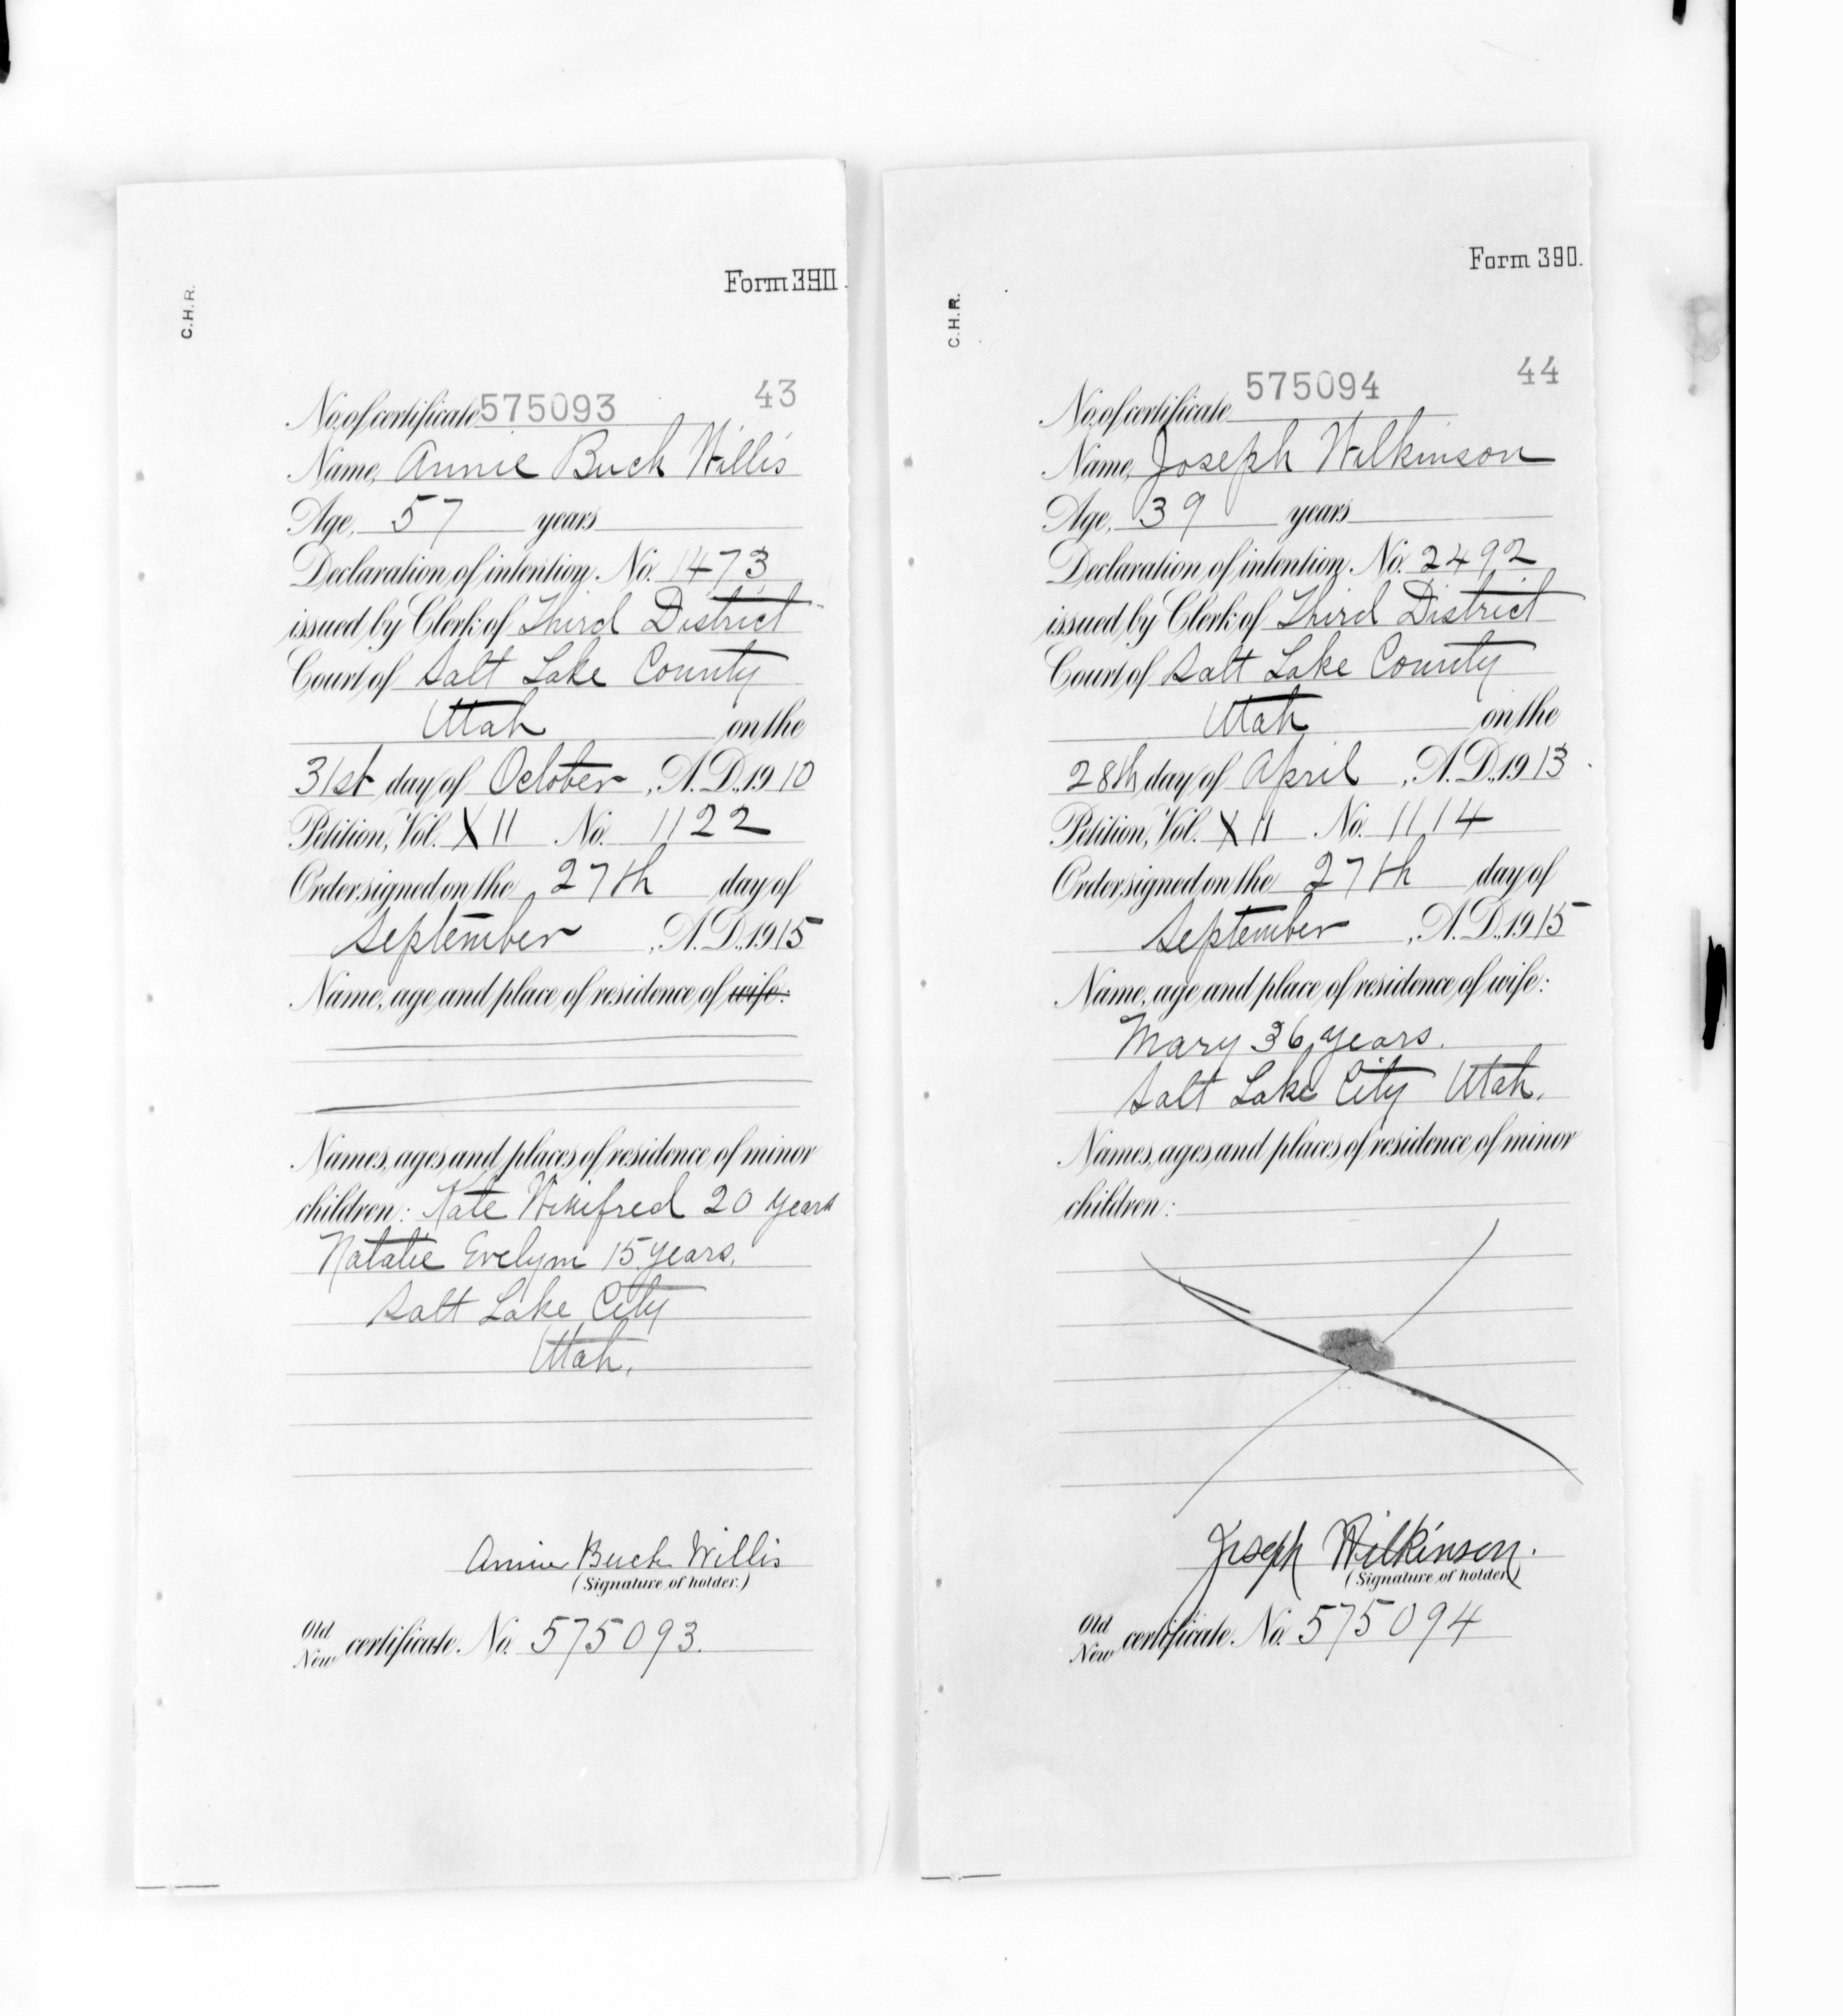 C.H.R.
Form 390.
43
No. of certificate 575093
Name, Annie Buck Willis
Age, 57 years
Declaration of intention No. 1473
issued by Clerk of Third District
Court of Salt Lake County
Utah on the
31st day of October, A.D. 1910
Petition, Vol. XII No. 1122
Order signed on the 27th day of
September, A.D. 1915
Name, age and place of residence of wife:
Names, ages and places of residence of minor
children: Kate Winifred 20 years
Natalie Evelyn 15 years.
Salt Lake City
Utah.
Annie Buck Willis
(Signature of holder.)
Old
New certificate No. 575093.
C.H.R.
Form 390.
44
No. of certificate 575094
Name, Joseph Wilkinson
Age, 39 years
Declaration of intention No. 2492
issued by Clerk of Third District
Court of Salt Lake County
Utah on the
28th day of April, A.D. 1913
Petition, Vol. XII No. 1114
Order signed on the 27th day of
September, A.D. 1915
Name, age and place of residence of wife:
Mary 36 years.
Salt Lake City Utah.
Names, ages and places of residence of minor
children:
Joseph Wilkinson.
(Signature of holder)
Old
New certificate No. 575094